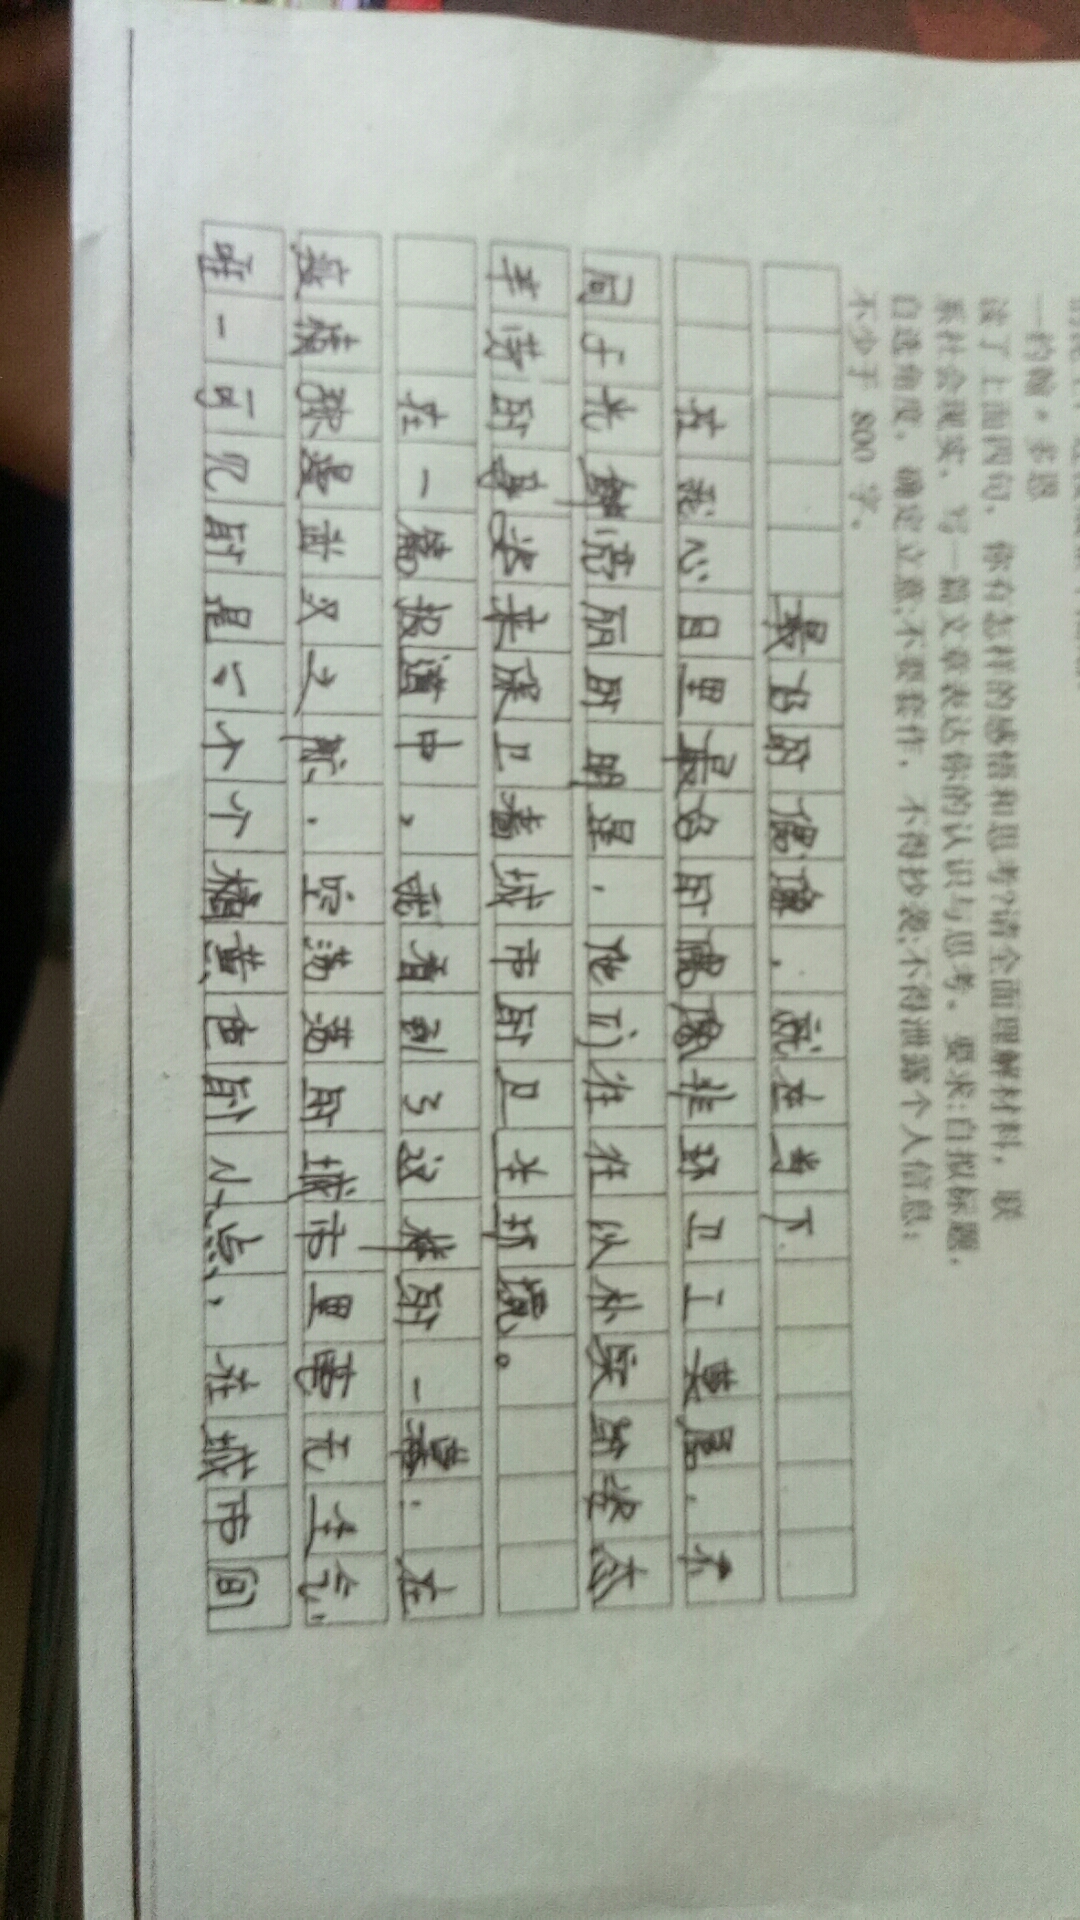 一约翰·多恩
读了上面四句,你有怎样的感悟和思考?请全面理解材料,联
系社会现实,写一篇文章表达你的认识与思考。要求:自拟标题,
自选角度,确定立意;不要套作,不得抄袭;不得泄露个人信息;
不少于 800 字。
最好的偶像,就在当下
在我心目里最好的偶像非环卫工莫属,不
同于光鲜亮丽的明星,他们往往以朴实的姿态
辛劳的身姿来保卫着城市的卫生环境。
在一篇报道中,我看到了这样的一幕:在
疫情弥漫武汉之际,空荡荡的城市里毫无生气,
唯一可见的是六个个橘黄色的小点,在城市间